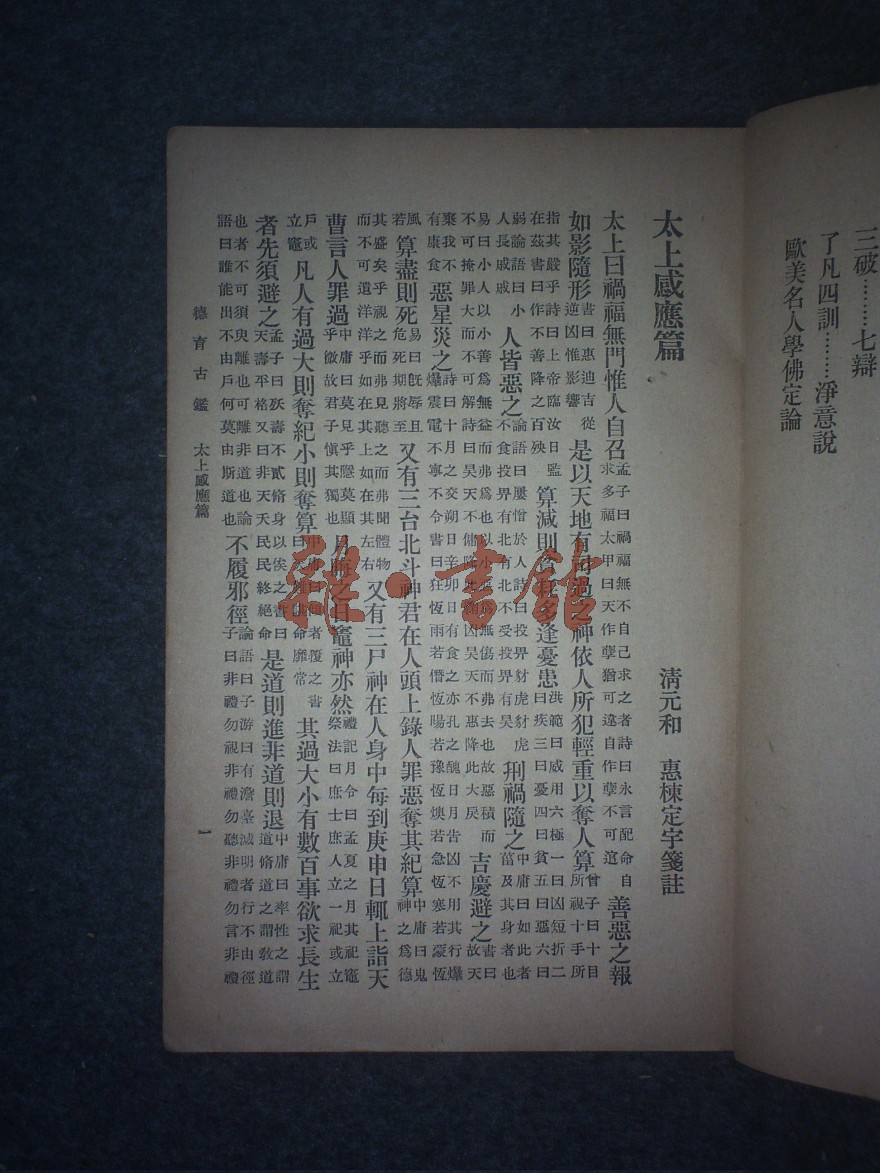 三破………七辯
了凡四訓………淨意說
歐美名人學佛定論
太上感應篇
清元和 惠棟定宇箋註
太上曰禍福無門惟人自召孟子曰禍福無不自己求之者詩曰永言配命自求多福太甲曰天作孽猶可違自作孽不可逭善惡之報
如影隨形書曰惠迪吉從逆凶惟影響是以天地有司過之神依人所犯輕重以奪人算曾子曰十目所視十手所
指其嚴乎詩曰上帝臨汝日監在茲書曰作不善降之百殃算減則貧耗多逢憂患洪範曰威用六極一曰凶短折二曰疾三曰憂四曰貧五曰惡六曰
弱論語曰小人長戚戚人皆惡之論語曰屢憎於人詩曰投畀豺虎豺虎不食投畀有北有北不受投畀有昊刑禍隨之中庸曰如此者菑及其身者也
易曰小人以小善爲無益而弗爲也以小惡爲無傷而弗去也故惡積而不可掩罪大而不可解詩曰昊天不傭降此鞠訩昊天不惠降此大戾吉慶避之書曰故天
棄我不有康食惡星災之詩曰十月之交朔日辛卯日有食之亦孔之醜日月告凶不用其行爆爆震電不寧不令書曰狂恆雨若僭恆暘若豫恆燠若急恆寒若蒙恆
風若算盡則死易曰旣辱且危死期將至又有三台北斗神君在人頭上錄人罪惡奪其紀算中庸曰鬼神之爲德
其盛矣乎視之而弗見聽之而弗聞體物而不可遺洋洋乎如在其上如在其左右又有三尸神在人身中每到庚申日輒上詣天
曹言人罪過中庸曰莫見乎隱莫顯乎微故君子愼其獨也月晦之日竈神亦然禮記月令曰孟夏之月其祀竈祭法曰庶士庶人立一祀或立
戶或立竈凡人有過大則奪紀小則奪算中庸曰傾者覆之書曰天難諶命靡常其過大小有數百事欲求長生
者先須避之孟子曰殀壽不貳脩身以俟之書曰天壽平格又曰非天夭民民終絕命是道則進非道則退中庸曰率性之謂道脩道之謂敎道
也者不可須臾離也可離非道也論語曰誰能出不由戶何莫由斯道也不履邪徑論語曰子游曰有澹臺滅明者行不由徑子曰非禮勿視非禮勿聽非禮勿言非禮
德育古鑑 太上感應篇 一
雜·書館